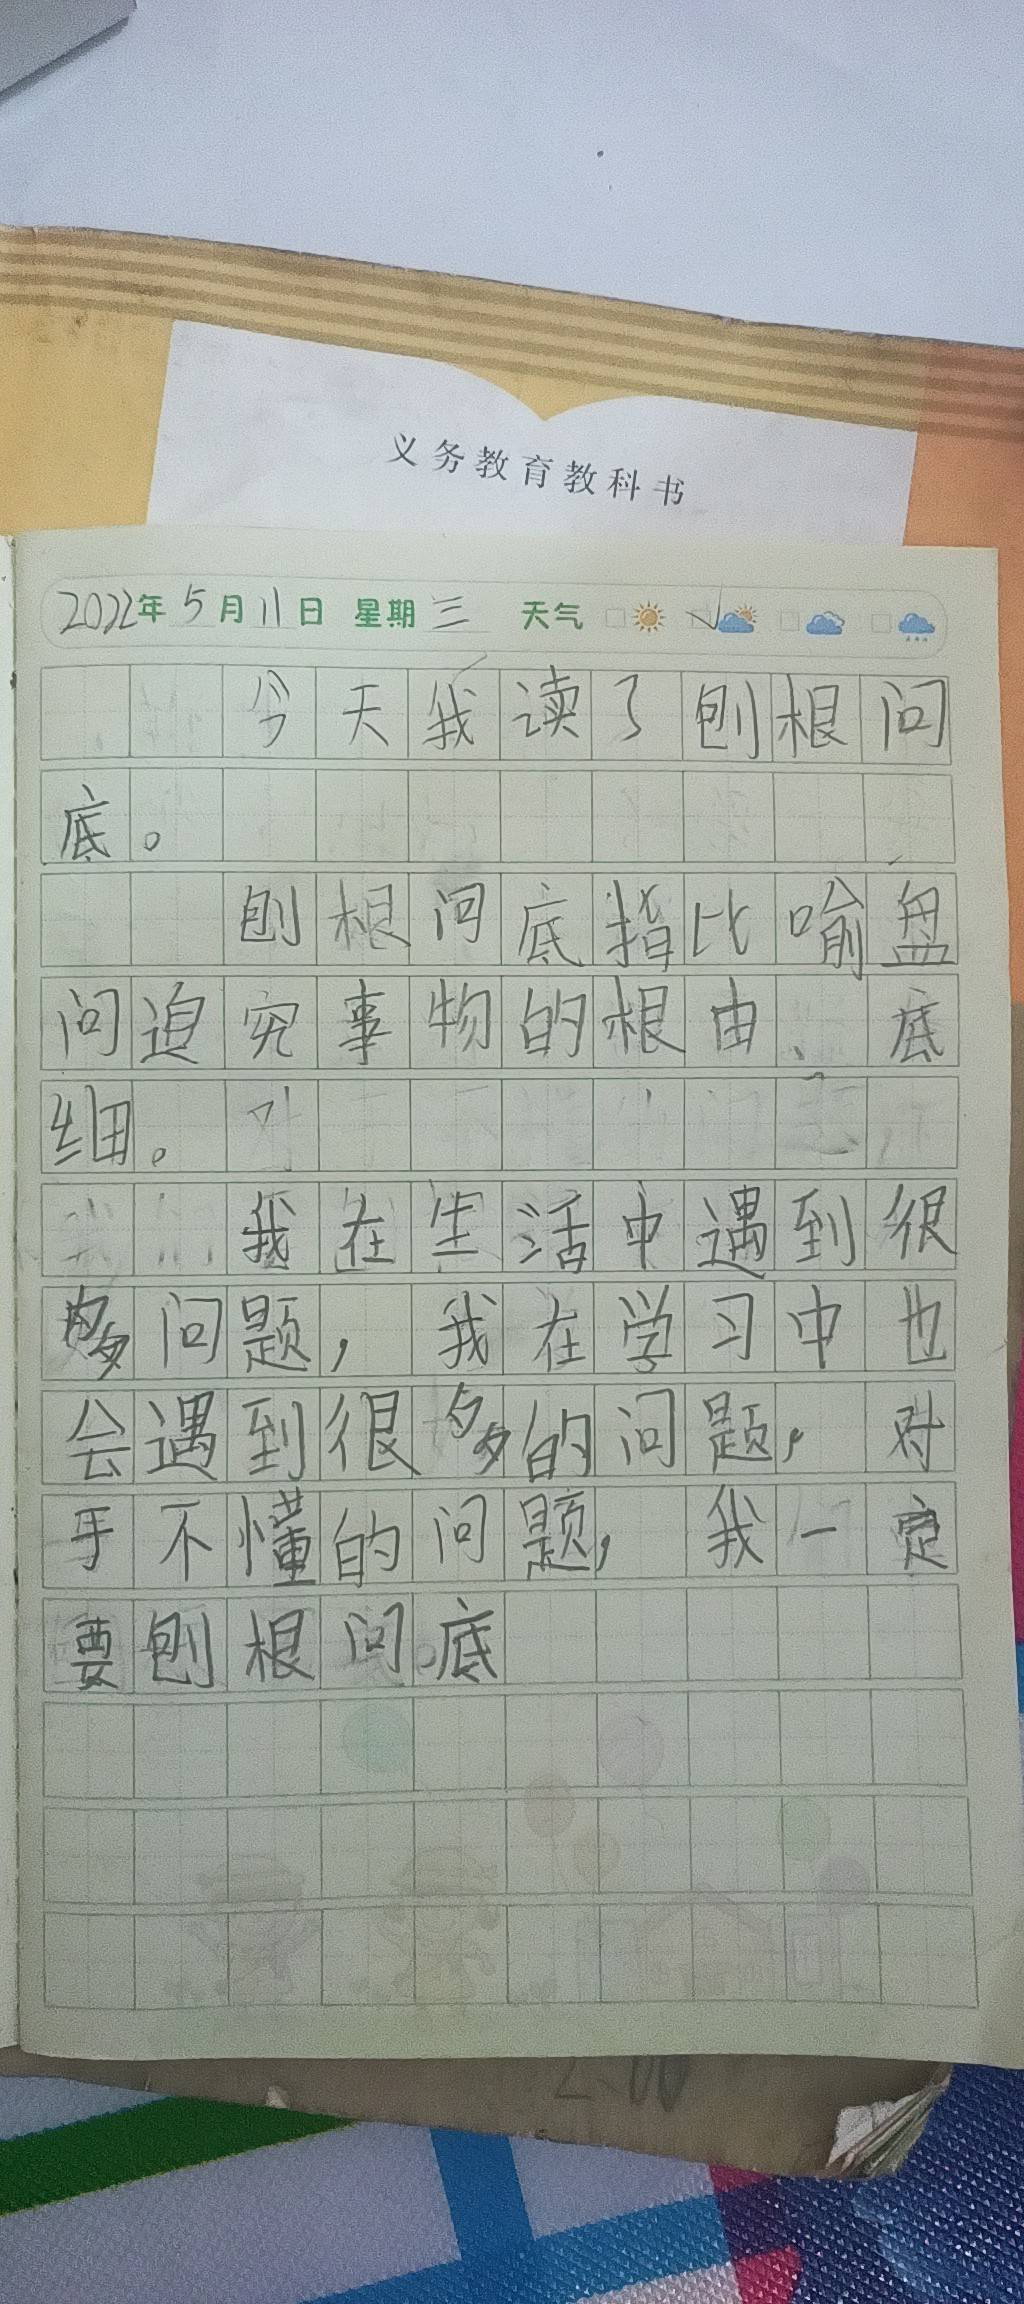 义务教育教科书
2022年5月11日 星期三 天气
今天我读了刨根问
底。
刨根问底指比喻盘
问追究事物的根由、底
细。
我在生活中遇到很
多问题，我在学习中也
会遇到很多的问题，对
于不懂的问题，我一定
要刨根问底